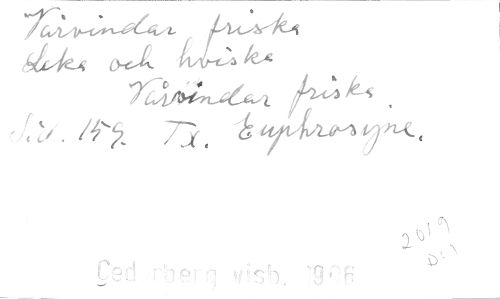 Vårvindar friska
Leka och hviska
Vårvindar friska
Sid. 159. Tx. Euphrosyne.
2019
D:1
Ced rberg visb. 1906